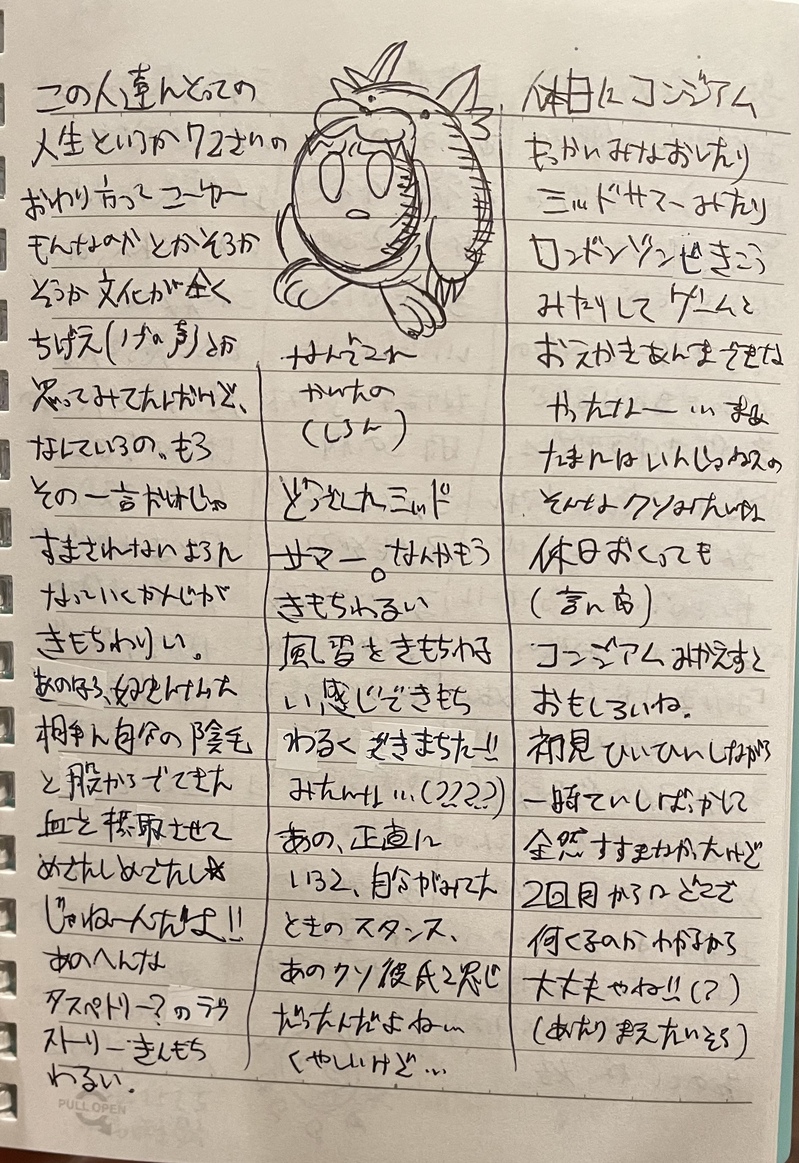 休日にコンジアム
もっかいみなおしたり
ミッドサマーみたり
ロンドンゾンビきこう
みたりしてゲームと
おえかきあんまできな
かったなー…まぁ
たまにはいんじゃねえの
そんなクソみたいな
休日おくっても
(言い方)
コンジアムみかえすと
おもしろいね。
初見ひいひいしながら
一時ていしばっかして
全然すすまなかったけど
2回目からはどこで
何くるのかわかるから
大丈夫やね!!(?)
(あたりまえたいそう)
なんでこれ
かいたの
(しらん)
どうでしたミッド
サマー。なんかもう
きもちわるい
風習をきもちわる
い感じできもち
わるくできまちたー!!
みたいな…(????)
あの、正直に
いうと、自分がみてた
ときのスタンス、
あのクソ彼氏と同じ
だったんだよね…
くやしいけど…
この人達にとっての
人生というか72さいの
おわり方ってこーゆー
もんなのかとかそうか
そうか文化が全く
ちげえ( の声)とか
思ってみてたんだけど、
なしているの、もう
その一言だけじゃ
すまされないように
なっていくかんじが
きもちわりい。
あのほら、好きんなった
相手に自分の陰毛
と股からでてきた
血を摂取させて
めでたしめでたし☆
じゃねーんだよ!!
あのへんな
タスペトリー?のラヴ
ストーリーきんもち
わるい。
PULL OPEN